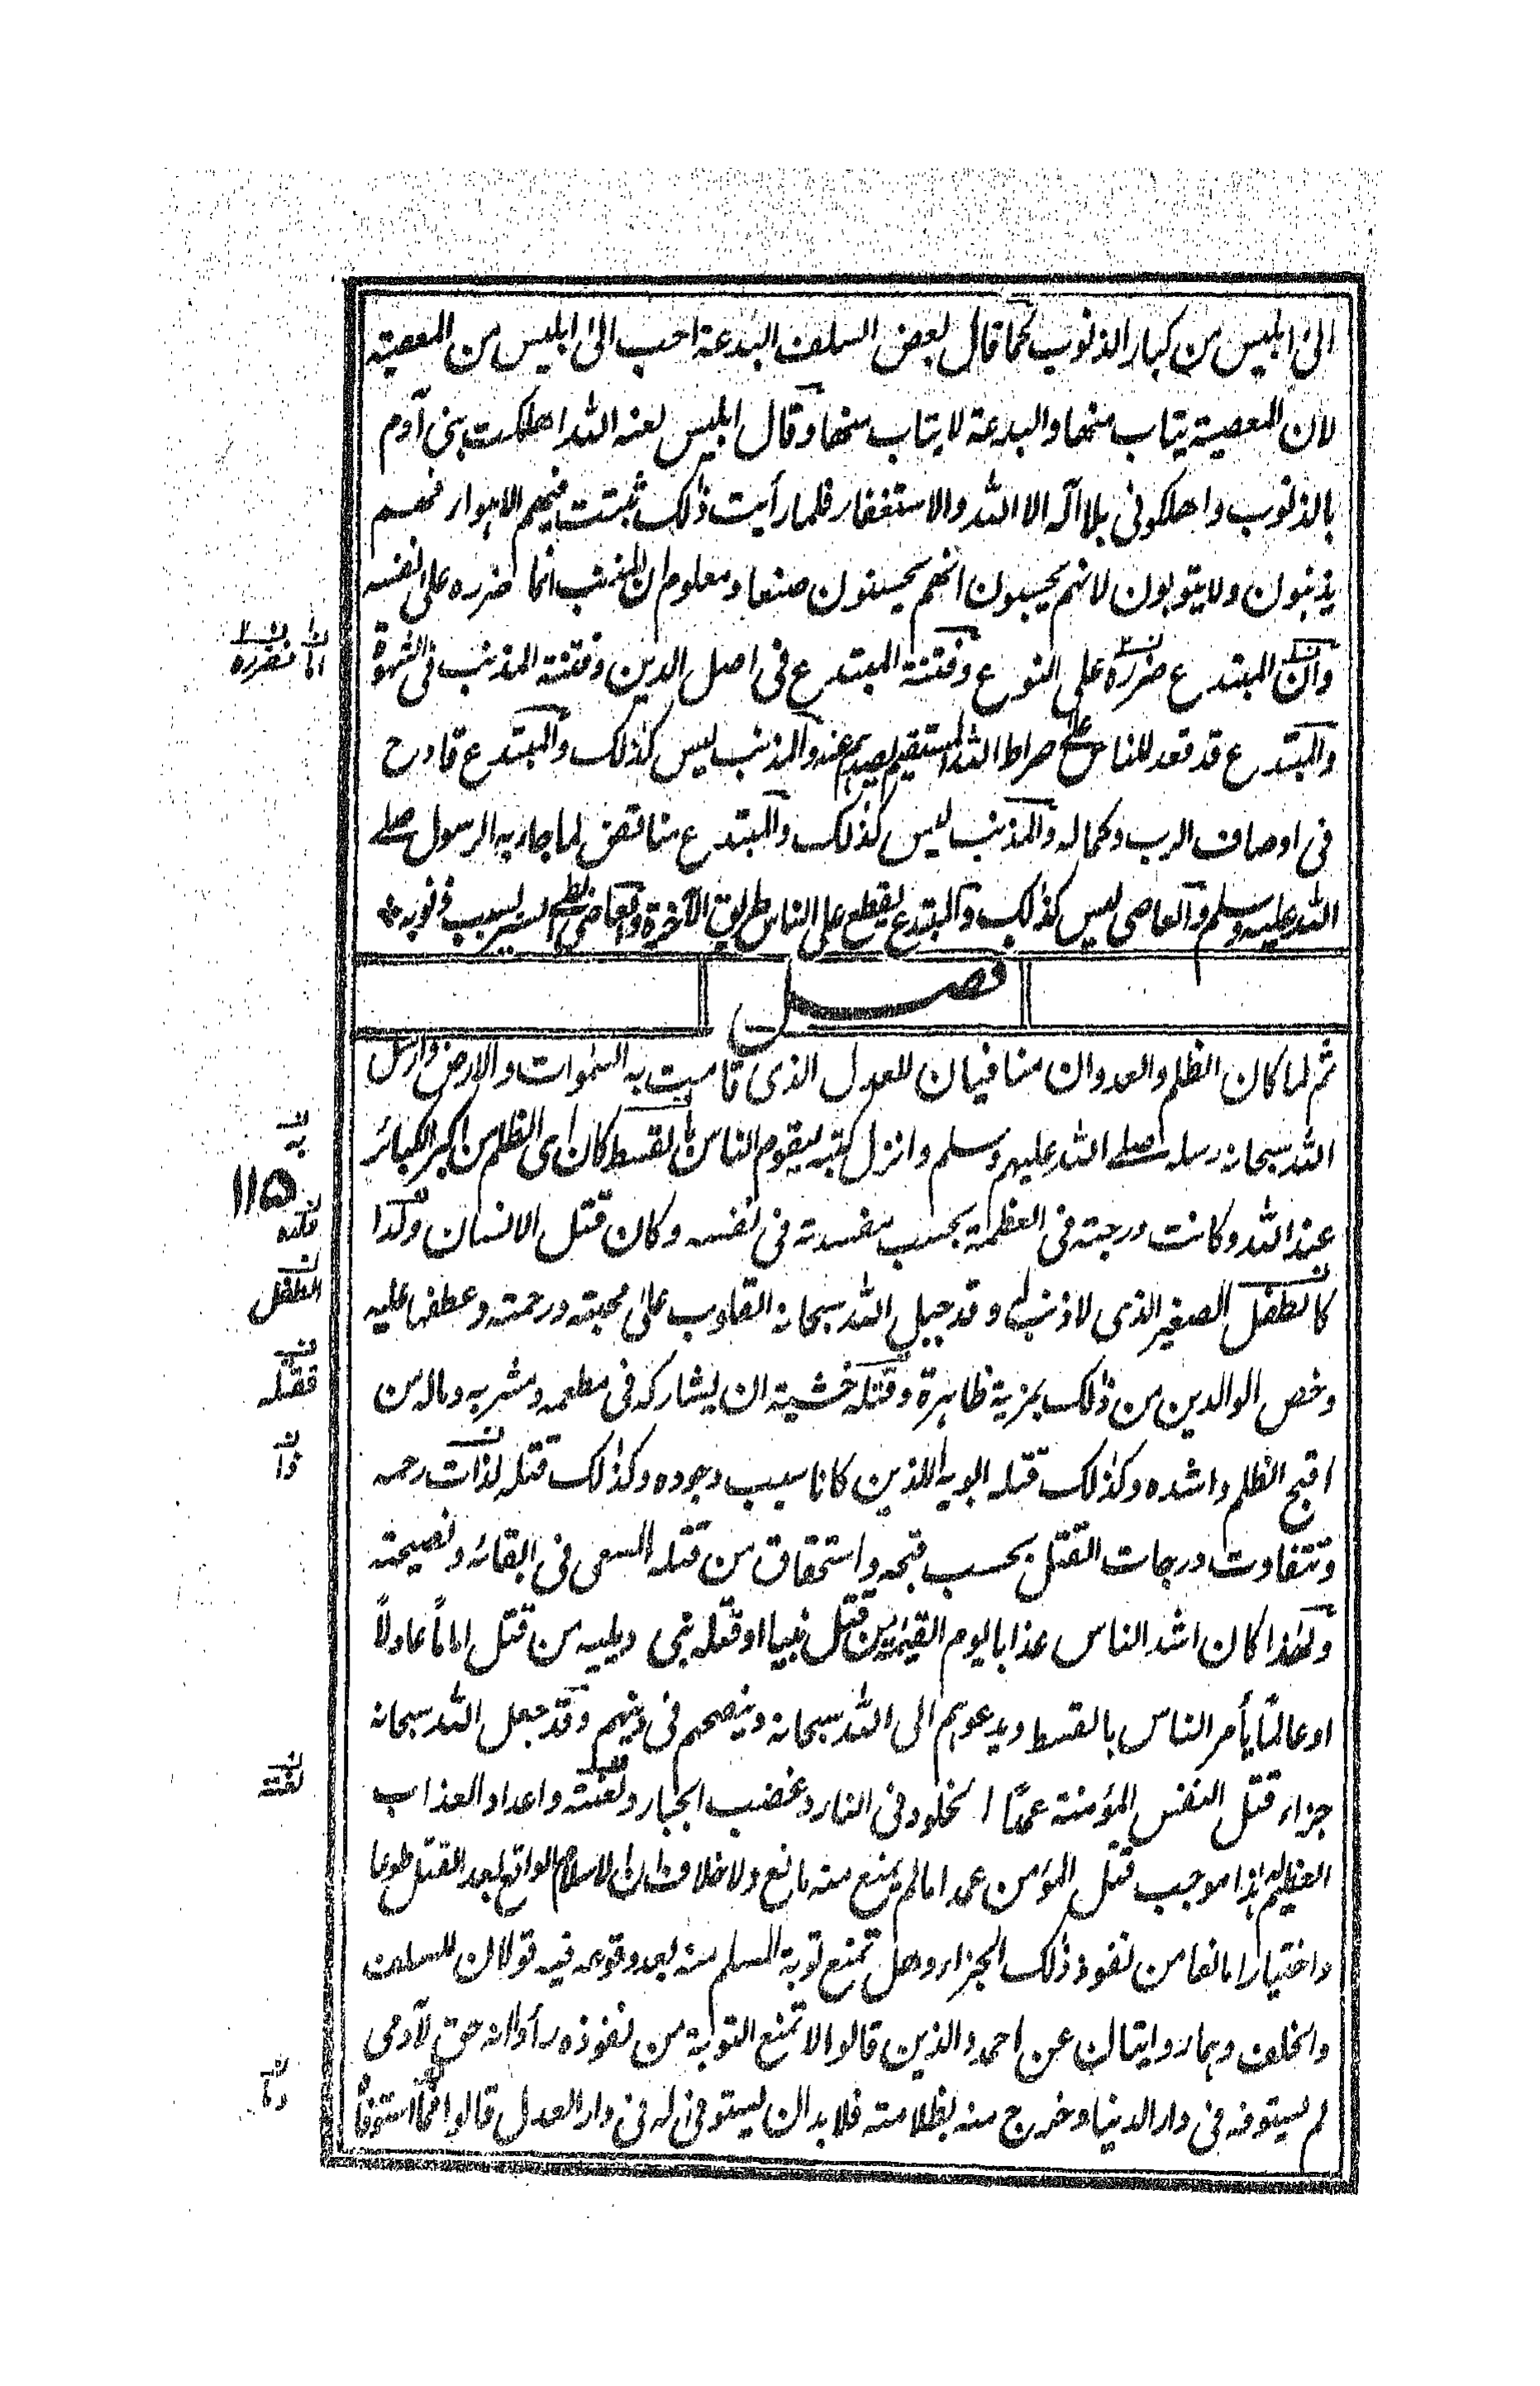 الى ابليس من كبار الذنوب كما قال بعض السلف البدعة احب الى ابليس من المعصية
لان المعصية يتاب منها والبدعة لا يتاب منها وقال ابليس لعنه الله اهلكت بنى آدم
بالذنوب واهلكونى بلا آله الا الله والاستغفار فلما رأيت ذلك ثبتت فيهم الاهواء فهم
يذنبون ولا يتوبون لانهم يحسبون انهم يحسنون صنعا ومعلوم ان المذنب انما ضرره على نفسه
وان المبتدع ضرره على النوع وفتنة المبتدع فى اصل الدين وفتنة المذنب فى الشهوة
اما فضرره
والمبتدع قد قعد للناس على صراط الله المستقيم يصدهم عنه والمذنب ليس كذلك والمبتدع قادح
فى اوصاف الرب وكماله والمذنب ليس كذلك والمبتدع مناقض لما جاء به الرسول صلے
الله عليه وسلم والعاصى ليس كذلك والمبتدع يقطع على الناس طريق الآخرة والعاصى بطئ السير بسبب ذنوبه
فصل
ثم لما كان الظلم والعدوان منافيان للعدل الذى قامت به السموات والارض وارسل
الله سبحانه رسله صلے الله عليهم وسلم وانزل كتبه ليقوم الناس بالقسط كان اى الظلم من اكبر الكبائر
به
١١٥
عند الله وكانت درجته فى العظمة بحسب مفسدته فى نفسه وكان قتل الانسان ولدا
فلده
كالطفل الصغير الذى لا ذنب له وقد جبل الله سبحانه القلوب على محبته ورحمته وعطفها عليه
الطفل
وخص الوالدين من ذلك بمزية ظاهرة وقتله خشية ان يشاركه فى مطعمه ومشربه وماله من
فقتله
اقبح الظلم واشده وكذلك قتله ابويه اللذين كانا سبب وجوده وكذلك قتله لذات رحمه
ذا
وتتفاوت درجات القتل بحسب قبحه واستحقاق من قتله السعى فى ابقائه ونصيحته
ولهذا كان اشد الناس عذابا يوم القيمة من قتل نبيا او قتله نبى ويليه من قتل اماماً عادلاً
او عالماً يأمر الناس بالقسط ويدعوهم الى الله سبحانه وينصحهم فى دينهم وقد جعل الله سبحانه
جزاء قتل النفس المؤمنة عمداً الخلود فى النار وغضب الجبار ولعنته واعداد العذاب
لعنته
العظيم هذا موجب قتل المؤمن عمدا ما لم يمنع منه مانع ولا خلاف ان الاسلام الواقع بعد القتل طوعا
واختيارا مانعا من نفوذ ذلك الجزاء وهل تمنع توبة المسلم منه بعد وقوعه فيه قولان للسلف
والخلف وهما روايتان عن احمد والذين قالوا لا تمنع التوبة من نفوذه رأوا انه حق لآدمى
لم يستوفه فى دار الدنيا وخرج منه بظلامته فلا بد ان يستوفى له فى دار العدل قالوا فما استوفاه
وما